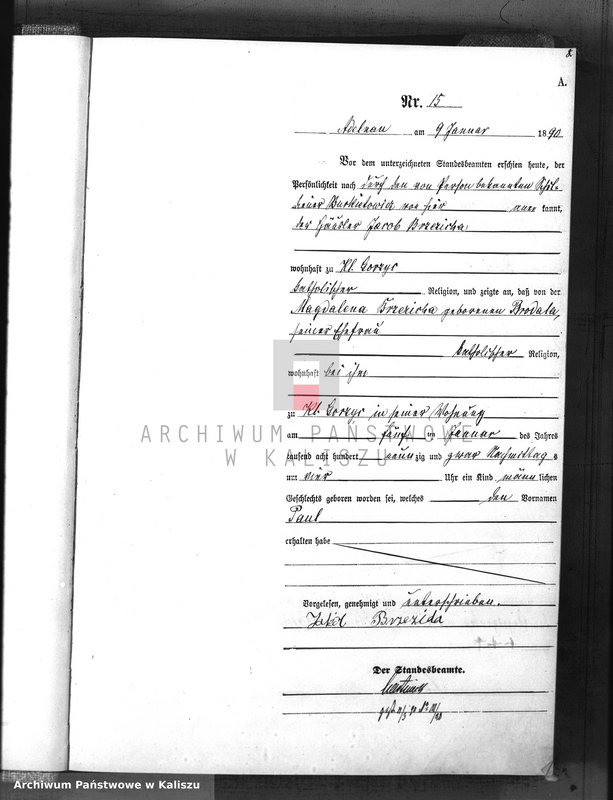 8
A.
Nr. 15
Adelnau am 9 Januar 1890
Vor dem unterzeichneten Standesbeamten erschien heute, der
Persönlichkeit nach durch den von Person bekannten
von hier kannt,
der Häusler Jacob Brzezicha,
wohnhaft zu Kl. Gorzyc
katholischer Religion, und zeigte an, daß von der
Magdalena Brzezicha geborenen Brodala,
seiner Ehefrau
katholischer Religion,
wohnhaft bei ihm
zu Kl. Gorzyc in seiner Wohnung
am fünften Januar des Jahres
tausend acht hundert neunzig und zwar Nachmittags
um vier Uhr ein Kind männlichen
Geschlechts geboren worden sei, welches den Vornamen
Paul
erhalten habe
Vorgelesen, genehmigt und unterschrieben.
Brzezida
Der Standesbeamte.
ARCHIWUM PAŃSTWOWE
W KALISZU
Archiwum Państwowe w Kaliszu